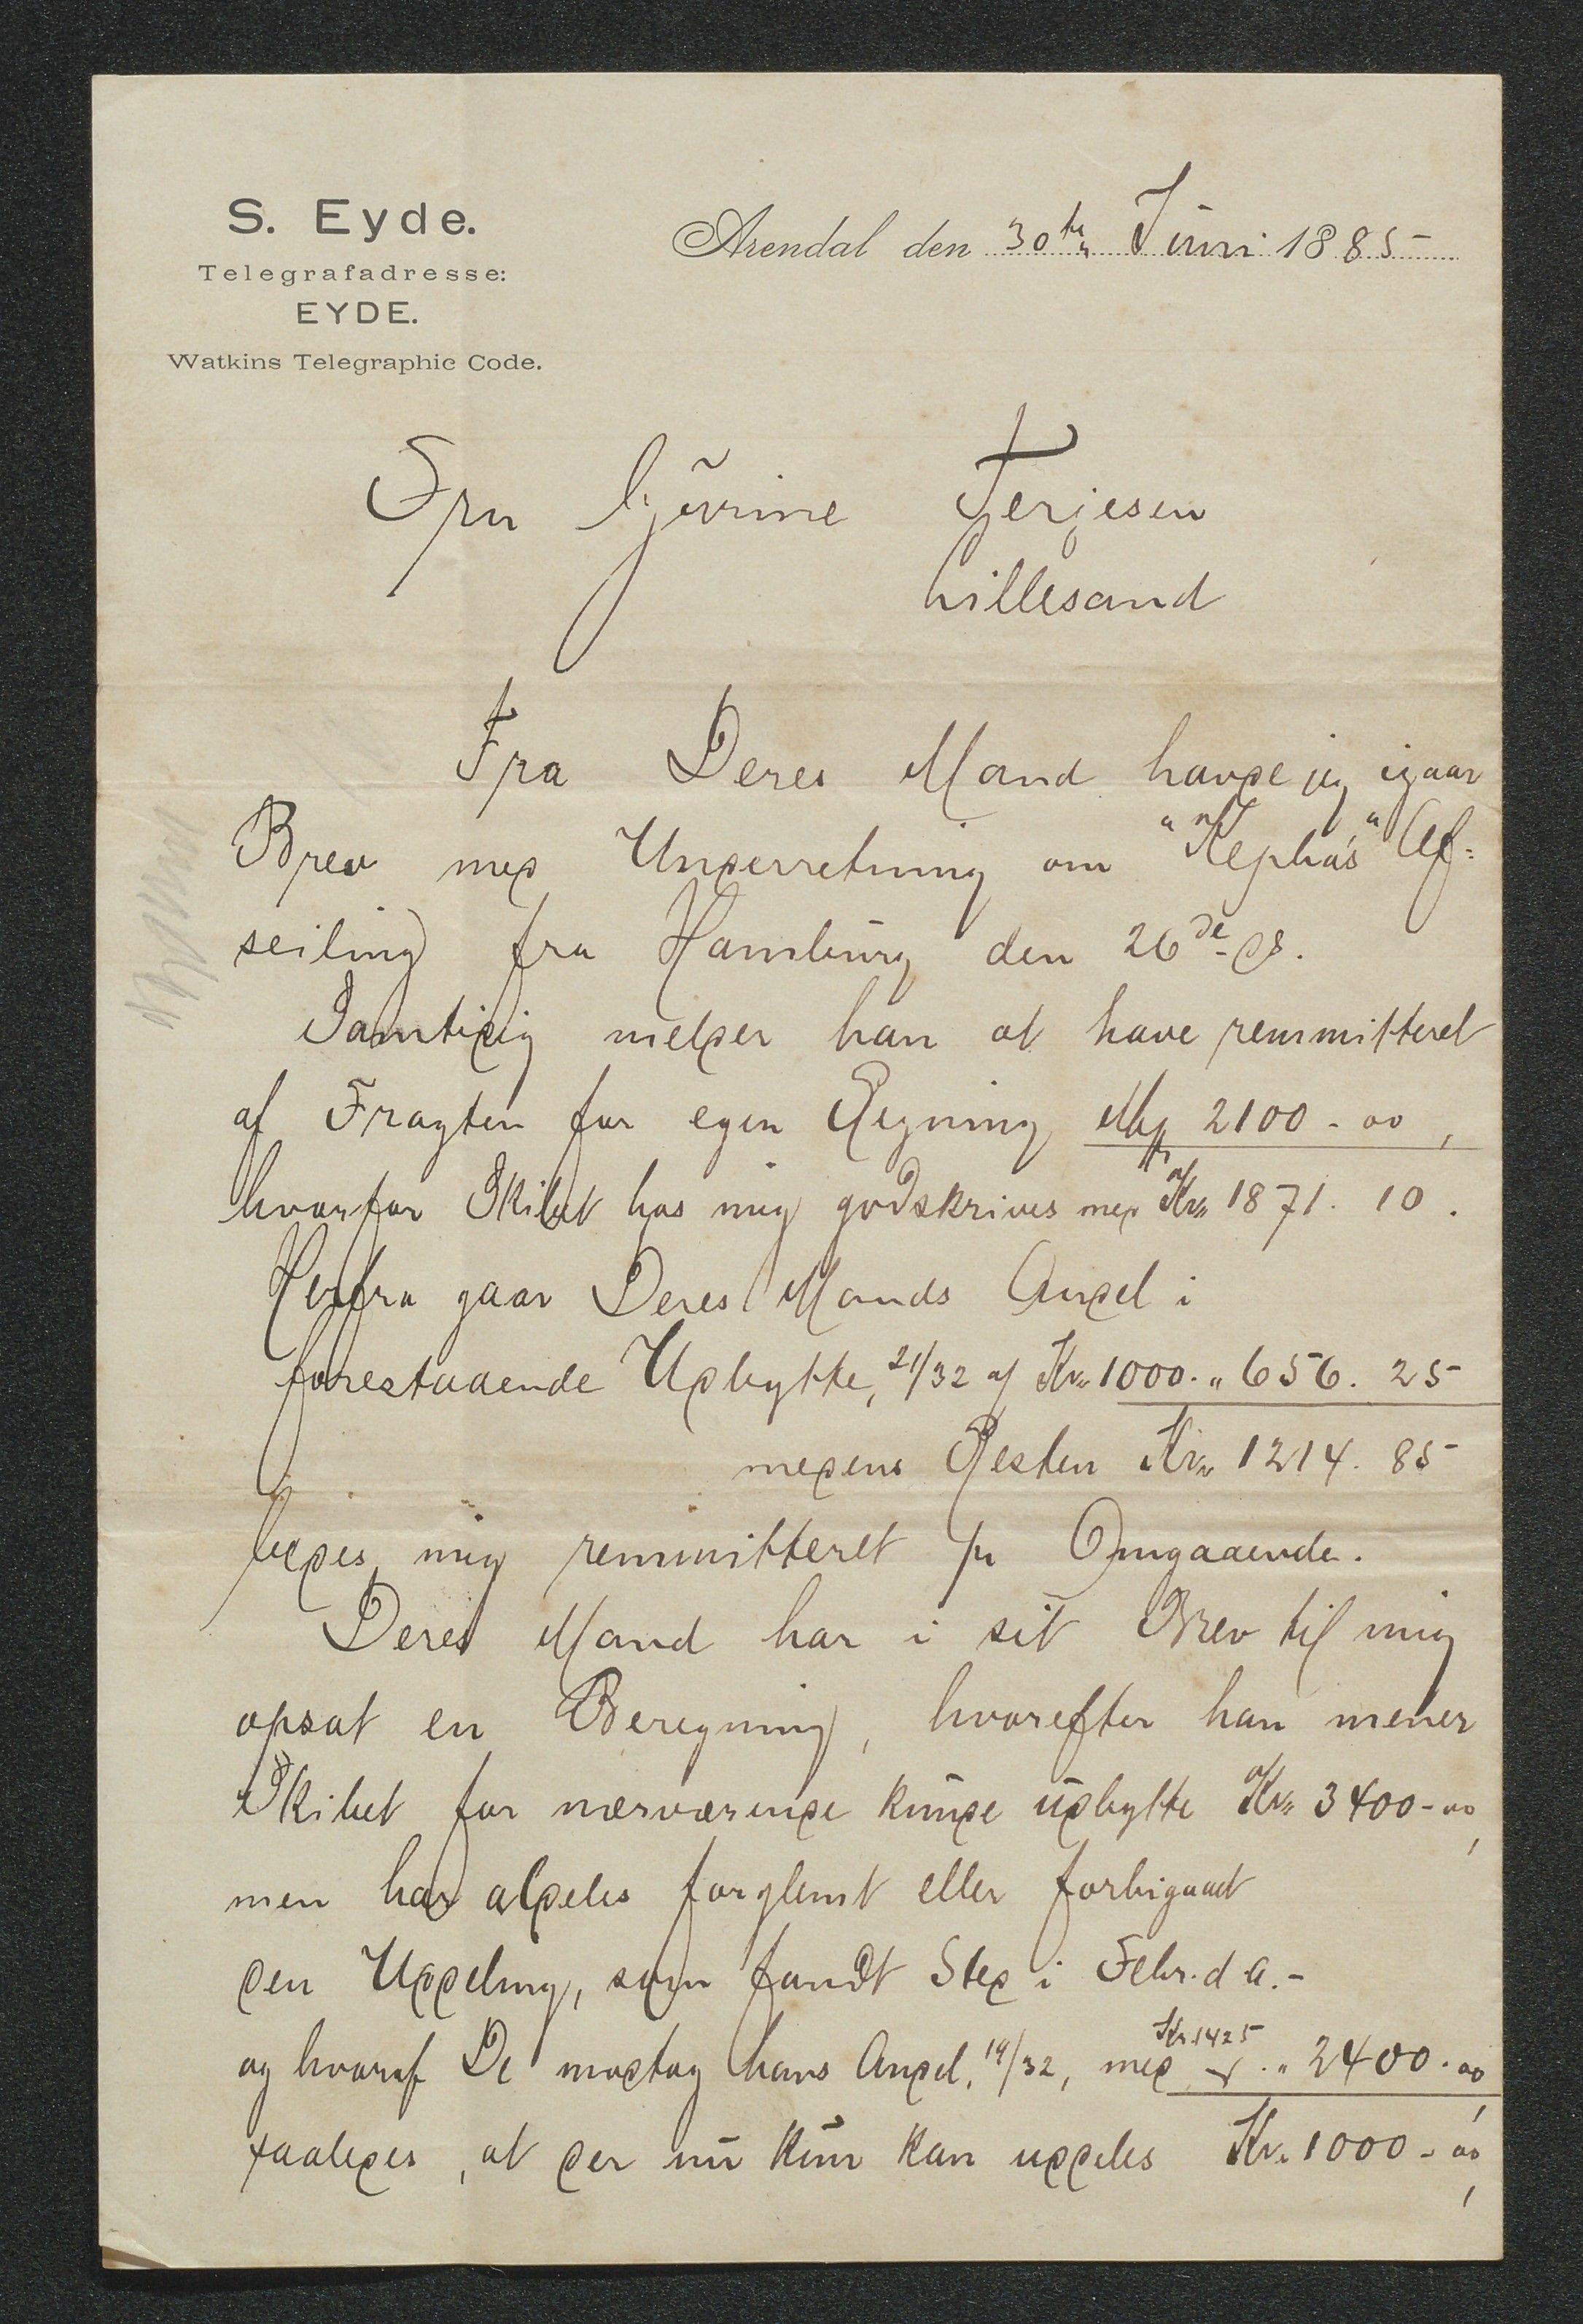 S. Eyde.
Telegrafadresse:
EYDE.
Watkins Telegraphic Code.
Arendal den 30te Juni 1885
Fru Gjurine Terjesen
Lillesand
Fra Deres Mand havde jeg igaar
Brev med Underretning om "Kepha's" Af=
seiling fra Hamburg den 26de ds.
Samtidig melder han at have remmitteret
af Fragten for egen Regning Mk 2100-00,
hvorfor Skibet hos mig godskrives med Kr. 1871. 10.
Herfra gaar Deres Mands Andel i
forestaaende Udbytte, 21/32 af Kr. 1000. " 656. 25
medens Resten Kr. 1214. 85
bedes mig remmitteret pr Omgaaende.
Deres Mand har i sit Brev til mig
opsat en Beregning, hvorefter han mener
Skibet for nærværende kunde udbytte Kr. 3400-00,
men har aldeles forglemt eller forbigaaet
den Uddeling, som fandt Sted i Febr. d A.-
og hvoraf De modtog hans Andel, 19/32, med Kr. 1425 . " 2400.00,
saaledes, at der nu kun kan uddeles Kr. 1000-00,